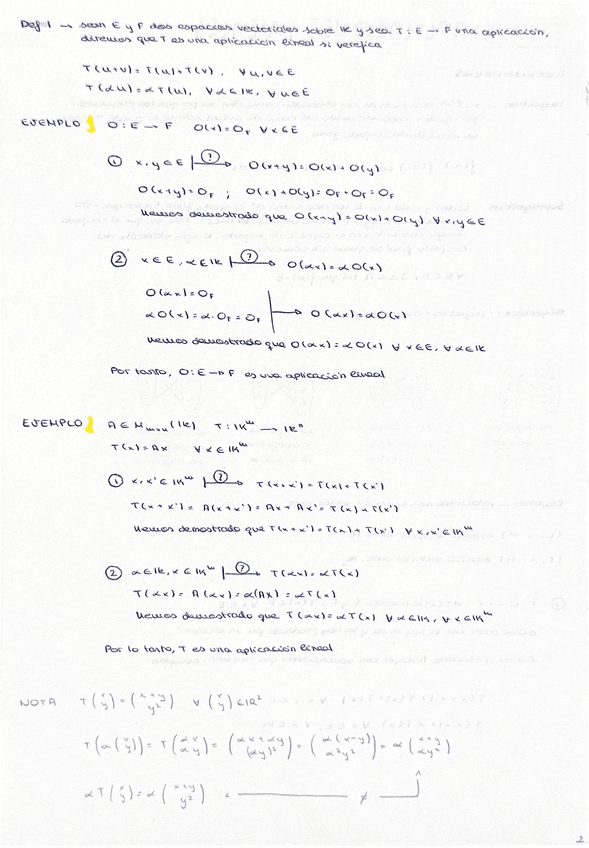 Def 1 → sean E y F dos espacios vectoriales sobre IK y sea T : E → F una aplicación,
diremos que T es una aplicación lineal si verifica
T(u+v) = T(u)+T(v), ∀ u,v ∈ E
T(αu) = αT(u), ∀ α ∈ IK, ∀ u ∈ E
EJEMPLO O : E → F O(x) = O_F ∀ x ∈ E
① x,y ∈ E |—?→ O(x+y) = O(x)+O(y)
O(x+y) = O_F ; O(x)+O(y) = O_F + O_F = O_F
Hemos demostrado que O(x+y) = O(x)+O(y) ∀ x,y ∈ E
② x ∈ E, α ∈ IK |—?→ O(αx) = αO(x)
O(αx) = O_F
αO(x) = α·O_F = O_F → O(αx) = αO(x)
Hemos demostrado que O(αx) = αO(x) ∀ x ∈ E, ∀ α ∈ IK
Por tanto, O : E → F es una aplicación lineal
EJEMPLO A ∈ M_{m×n}(IK) T : IK^m → IK^n
T(x) = Ax ∀ x ∈ IK^m
① x,x' ∈ IK^m |—?→ T(x+x') = T(x)+T(x')
T(x+x') = A(x+x') = Ax + Ax' = T(x)+T(x')
Hemos demostrado que T(x+x') = T(x)+T(x') ∀ x,x' ∈ IK^m
② α ∈ IK, x ∈ IK^m |—?→ T(αx) = αT(x)
T(αx) = A(αx) = α(Ax) = αT(x)
Hemos demostrado que T(αx) = αT(x) ∀ α ∈ IK, ∀ x ∈ IK^m
Por lo tanto, T es una aplicación lineal
NOTA T(x y) = (x+y y²) ∀ (x y) ∈ IR²
T(α(x y)) = T(αx αy) = (αx+αy (αy)²) = (α(x+y) α²y²) = α(x+y αy²)
αT(x y) = α(x+y y²) ← ≠
2